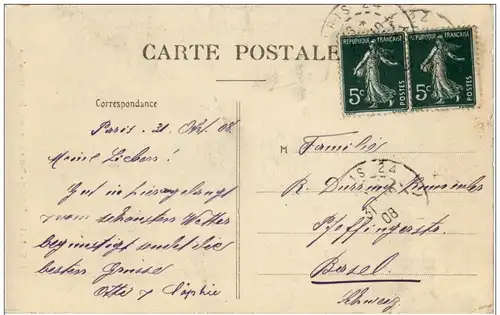 CARTE POSTALE
RÉPUBLIQUE FRANÇAISE
5c POSTES
RÉPUBLIQUE FRANÇAISE
5c POSTES
Correspondance
Paris. 31. Okt. 08.
Meine Lieben!
Gut in angelangt
vom schönsten Wetter
begünstigt sendet die
besten Grüsse
Otto & Sophie
M Familie
R.
Pfeffingerstr.
Basel.
Schweiz
08